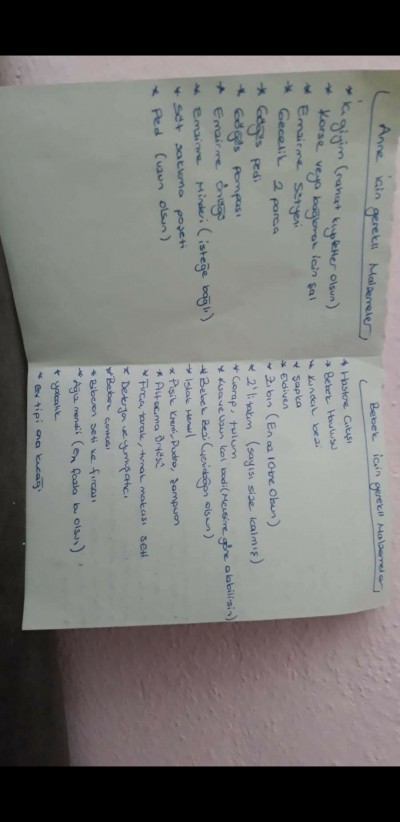 Anne için gerekli Malzemeler
* İç giyim (rahat kıyafetler olsun)
* Korse veya bağlamak için şal
* Emzirme Sütyeni
* Gecelik 2 parça
* Göğüs pedi
* Göğüs pompası
* Emzirme Önlüğü
* Emzirme Minderi (isteğe bağlı)
* Süt saklama poşeti
* Ped (uzun olsun)
Bebek için gerekli Malzemeler
* Hastane Çıkışı
* Bebek Havlusu
* Kundak bezi
* Şapka
* Eldiven
* Zıbın (En az 10 tane olsun)
* 2'li takım (sayısı size kalmış)
* Çorap, tulum
* Kısa ve uzun kol badi (Mevsime göre alabilirsin)
* Bebek Bezi (yenidoğan olsun)
* Islak Mendil
* Pişik Kremi-Pudra, Şampuan
* Alt açma Örtüsü
* Fırça, tarak, tırnak makası seti
* Deterjan ve yumuşatıcı
* Bebek çantası
* Biberon seti ve fırçası
* Ağız mendili (en fazla bu olsun)
* yatak
* Ev tipi ana kucağı